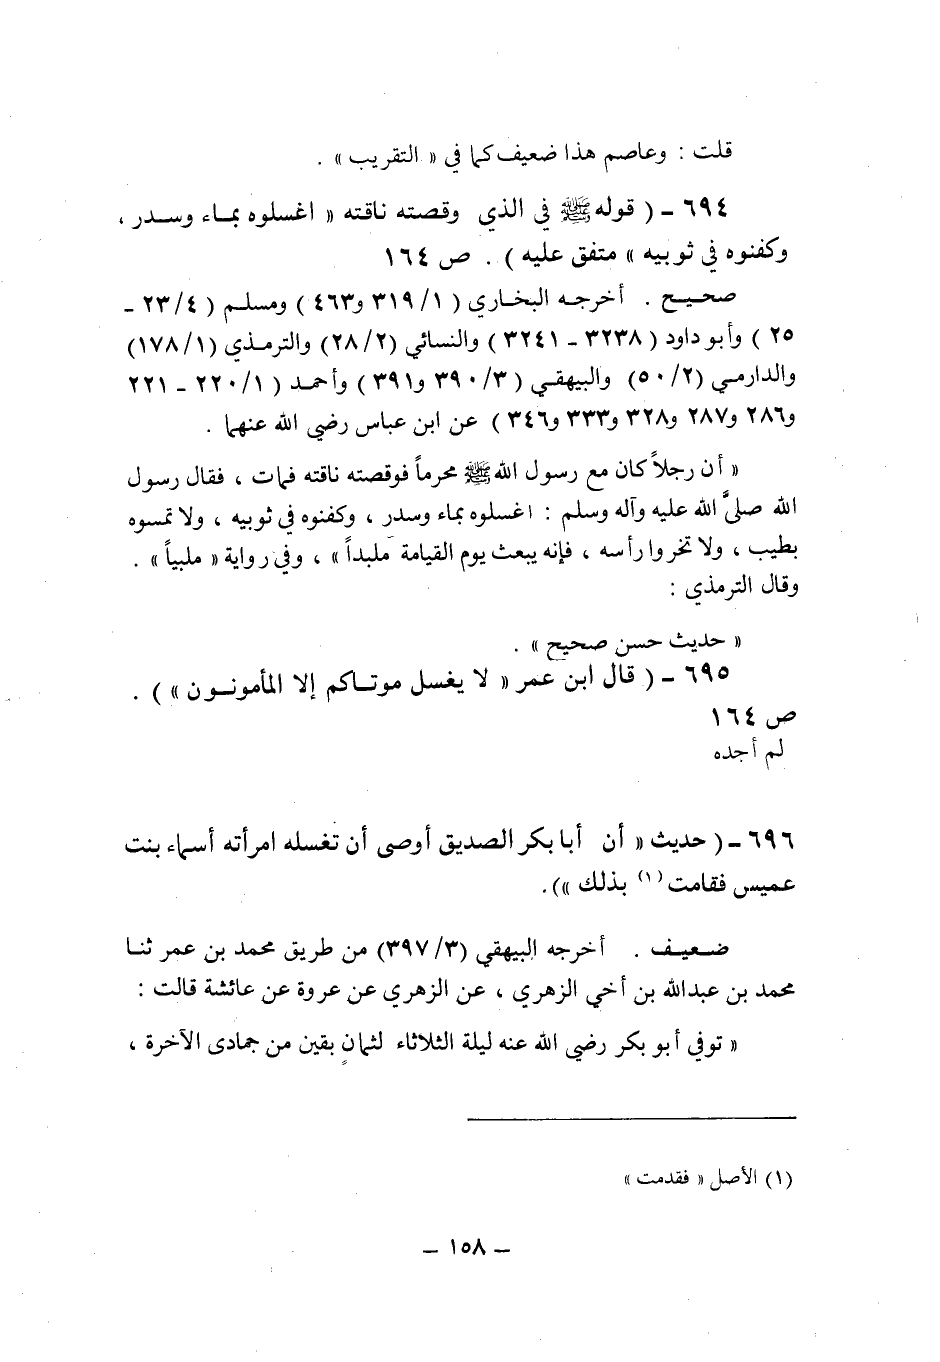 قلت : وعاصم هذا ضعيف كما في « التقريب » .
٦٩٤ ـ ( قوله ﷺ في الذي وقصته ناقته « اغسلوه بماء وسدر ،
وكفنوه في ثوبيه » متفق عليه ) . ص ١٦٤
صحيح . أخرجه البخاري ( ١/ ٣١٩ و٤٦٣ ) ومسلم ( ٤/ ٢٣ ـ
٢٥ ) وأبو داود ( ٣٢٣٨ ـ ٣٢٤١ ) والنسائي (٢/ ٢٨) والترمذي (١/ ١٧٨)
والدارمي (٢/ ٥٠) والبيهقي ( ٣/ ٣٩٠ و٣٩١ ) وأحمد ( ١/ ٢٢٠ ـ ٢٢١
و٢٨٦ و٢٨٧ و٣٢٨ و٣٣٣ و٣٤٦ ) عن ابن عباس رضي الله عنهما .
« أن رجلاً كان مع رسول الله ﷺ محرماً فوقصته ناقته فمات ، فقال رسول
الله صلىَّ الله عليه وآله وسلم : اغسلوه بماء وسدر ، وكفنوه في ثوبيه ، ولا تمسوه
بطيب ، ولا تخروا رأسه ، فإنه يبعث يوم القيامة ملبداً » ، وفي رواية « ملبياً » .
وقال الترمذي :
« حديث حسن صحيح » .
٦٩٥ ـ ( قال ابن عمر « لا يغسل موتاكم إلا المأمونون » ) .
ص ١٦٤
لم أجده
٦٩٦ ـ ( حديث « أن أبا بكر الصديق أوصى أن تغسله امرأته أسماء بنت
عميس فقامت (١) بذلك »).
ضعيف . أخرجه البيهقي (٣/ ٣٩٧) من طريق محمد بن عمر ثنا
محمد بن عبدالله بن أخي الزهري ، عن الزهري عن عروة عن عائشة قالت :
« توفي أبو بكر رضي الله عنه ليلة الثلاثاء لثمانٍ بقين من جمادى الآخرة ،
(١) الأصل « فقدمت »
ـ ١٥٨ ـ